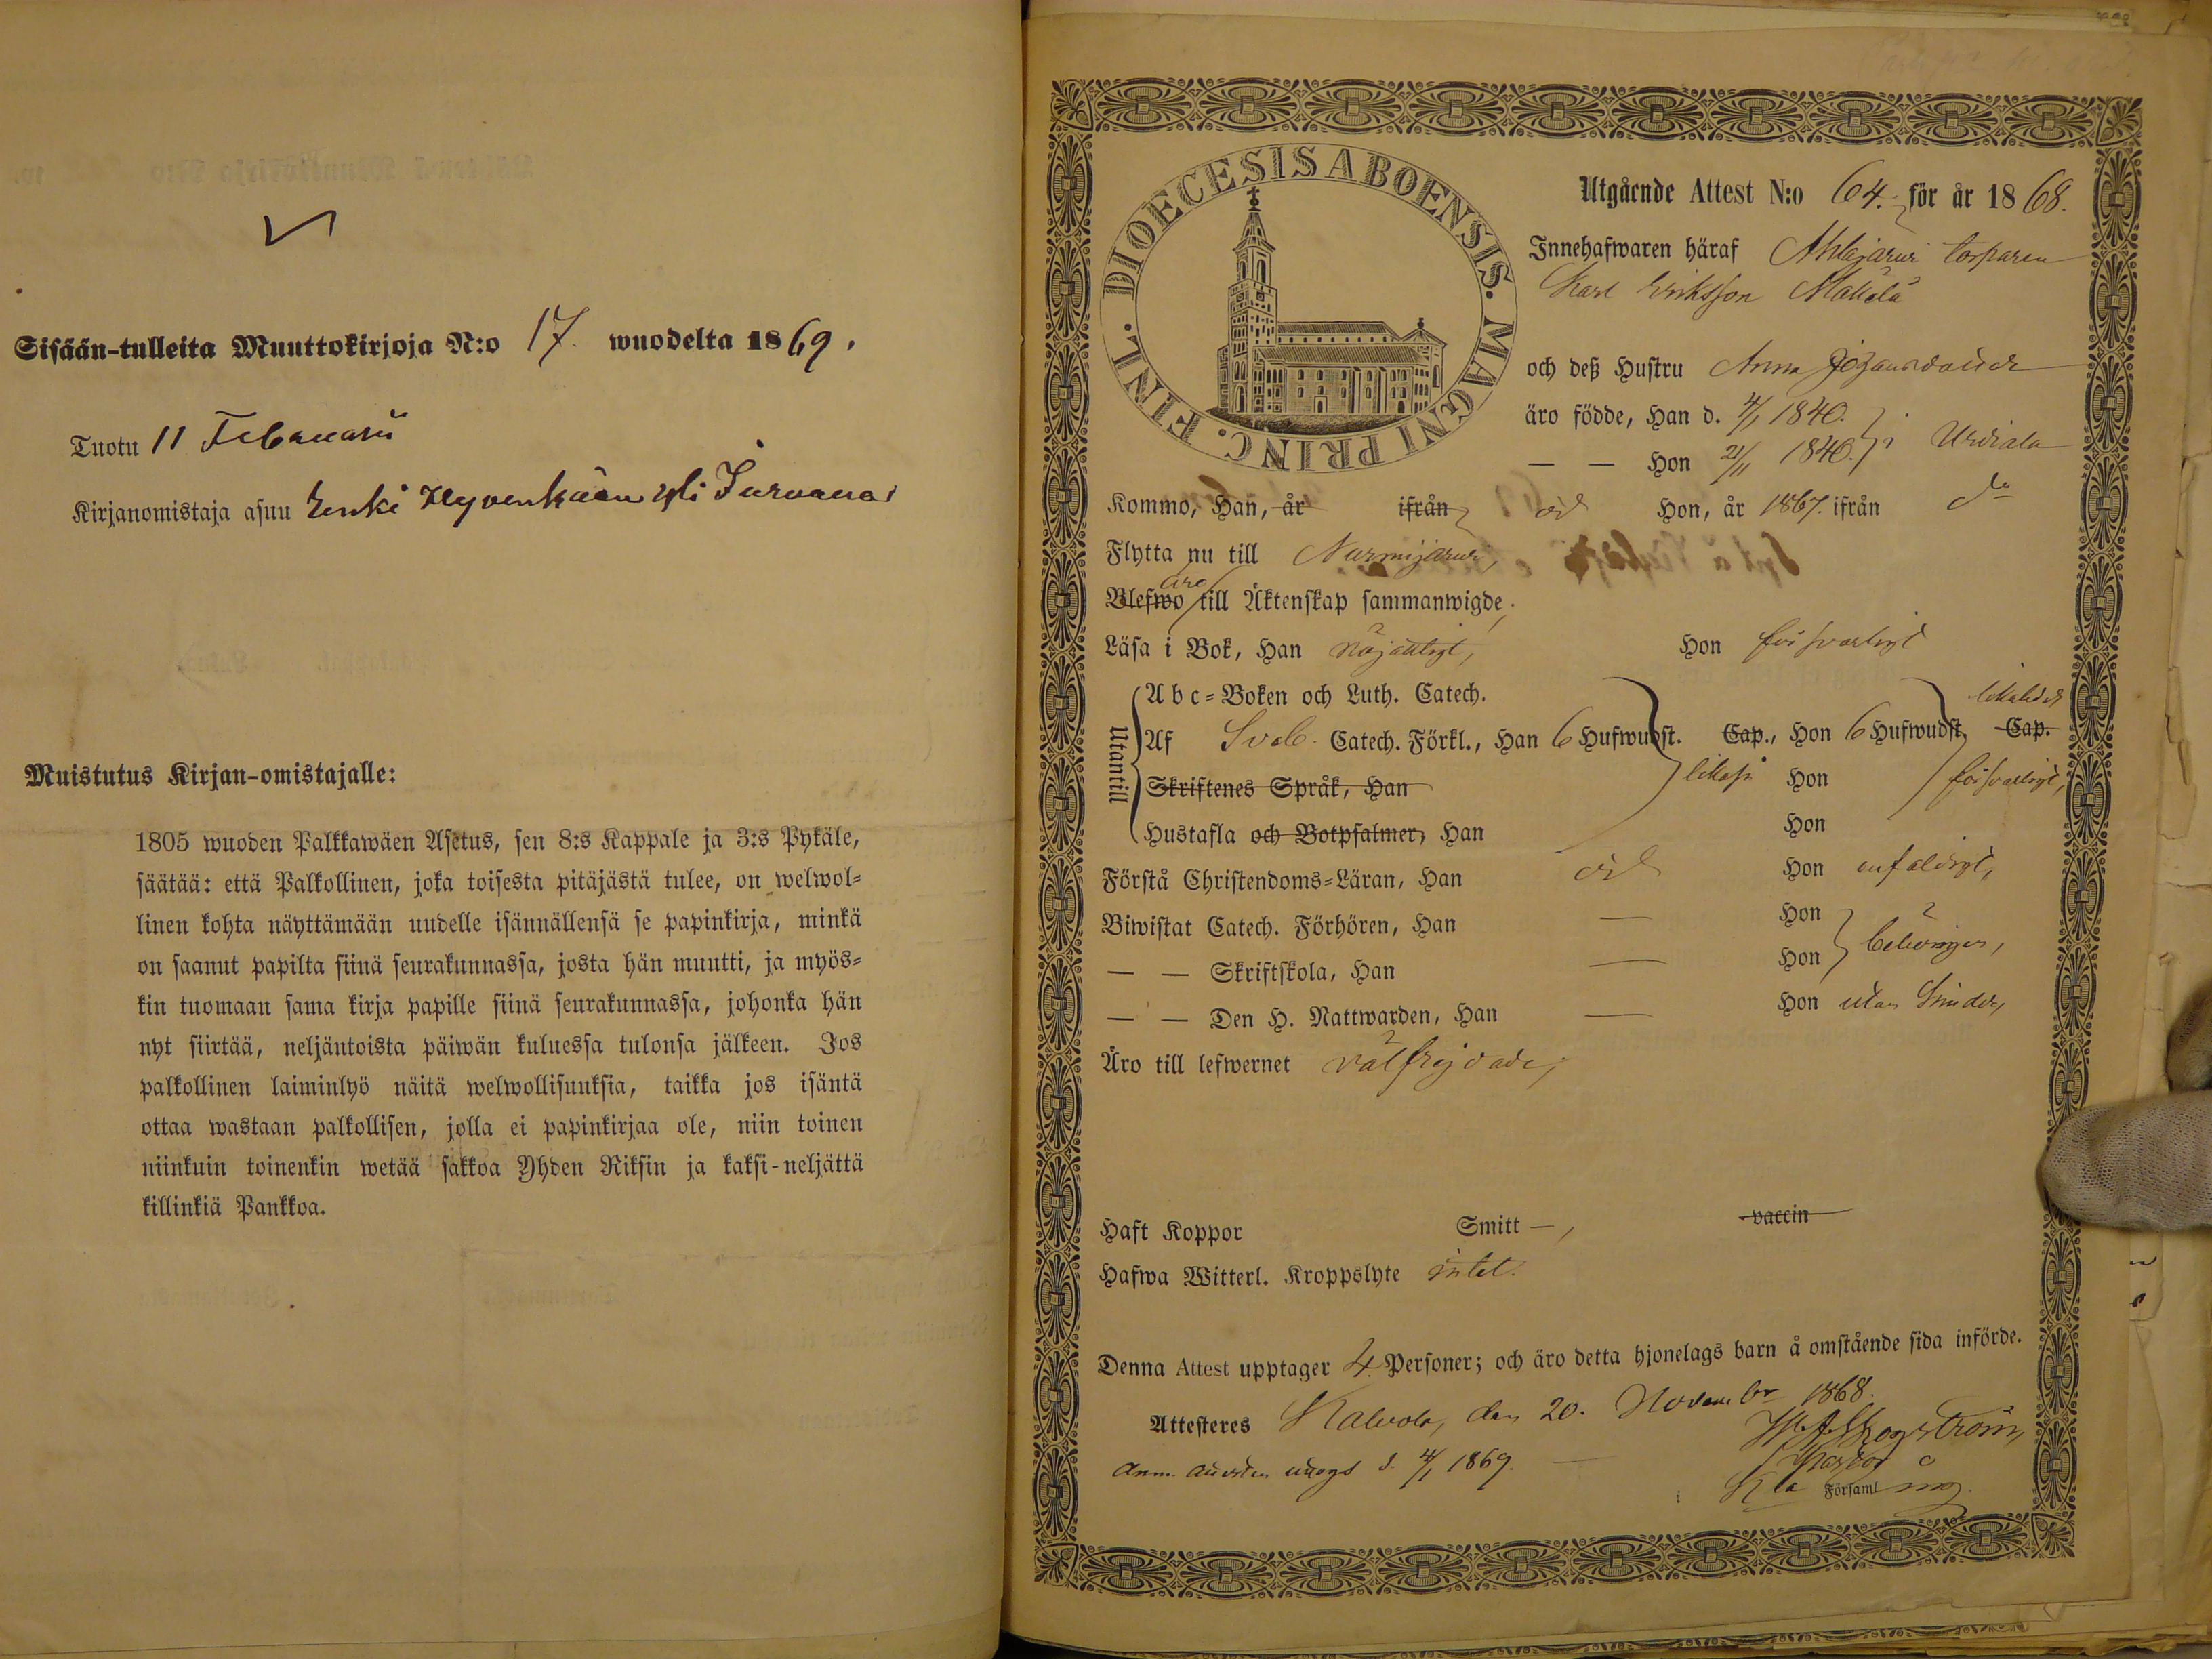 Sisään-tulleita Muuttokirjoja N:o 17. wuodelta 1869.
Tuotu 11 Februarii
Kirjanomistaja asuu Hyvenkään yli
Muistutus Kirjan-omistajalle:
1805 wuoden Palkkawäen Asetus, sen 8:s Kappale ja 3:s Pykäle,
säätää: että Palkollinen, joka toisesta pitäjästä tulee, on welwol-
linen kohta näyttämään uudelle isännällensä se papinkirja, minkä
on saanut papilta siinä seurakunnassa, josta hän muutti, ja myös-
kin tuomaan sama kirja papille siinä seurakunnassa, johonka hän
nyt siirtää, neljäntoista päiwän kuluessa tulonsa jälkeen. Jos
palkollinen laiminlyö näitä welwollisuuksia, taikka jos isäntä
ottaa wastaan palkollisen, jolla ei papinkirjaa ole, niin toinen
niinkuin toinenkin wetää sakkoa Yhden Riksin ja kaksi-neljättä
killinkiä Pankkoa.
DIOECESIS ABOENSIS. MAGNI PRINC. FINL.
Utgående Attest N:o 64. för år 1868.
Innehafwaren häraf torparen
Karl Eriksson
och deß Hustru Anna
äro födde, Han d. 4/1 1840.
— — Hon 21/11 1840. i Urdiala
Kommo, Han, år ifrån Hon, år 1867. ifrån do
Flytta nu till Nurmijärvi,
äro
Blefwo till Äktenskap sammanwigde,
Läsa i Bok, Han nöjaktigt, Hon försvarligt
Utantill
Abc-Boken och Luth. Catech.
Af Sveb. Catech. Förkl., Han 6 Hufwudst. Cap., Hon 6 Hufwudst. Cap.
Skriftenes Språk, Han Hon försvarligt,
Hustafla och Botpsalmer, Han Hon
Förstå Christendoms-Läran, Han Hon enfaldigt,
Biwistat Catech. Förhören, Han — Hon
— — Skriftskola, Han — Hon behörigen,
— — Den H. Nattwarden, Han — Hon utan hinder,
Äro till lefwernet välfrejdade,
Haft Koppor Smitt — , vaccin
Hafwa Witterl. Kroppslyte intet.
Denna Attest upptager 4 Personer; och äro detta hjonelags barn å omstående sida införde.
Attesteres Kalvola, den 20. November 1868.
Anm. uttogs d. 4/1 1869.
Pastor
i Församling